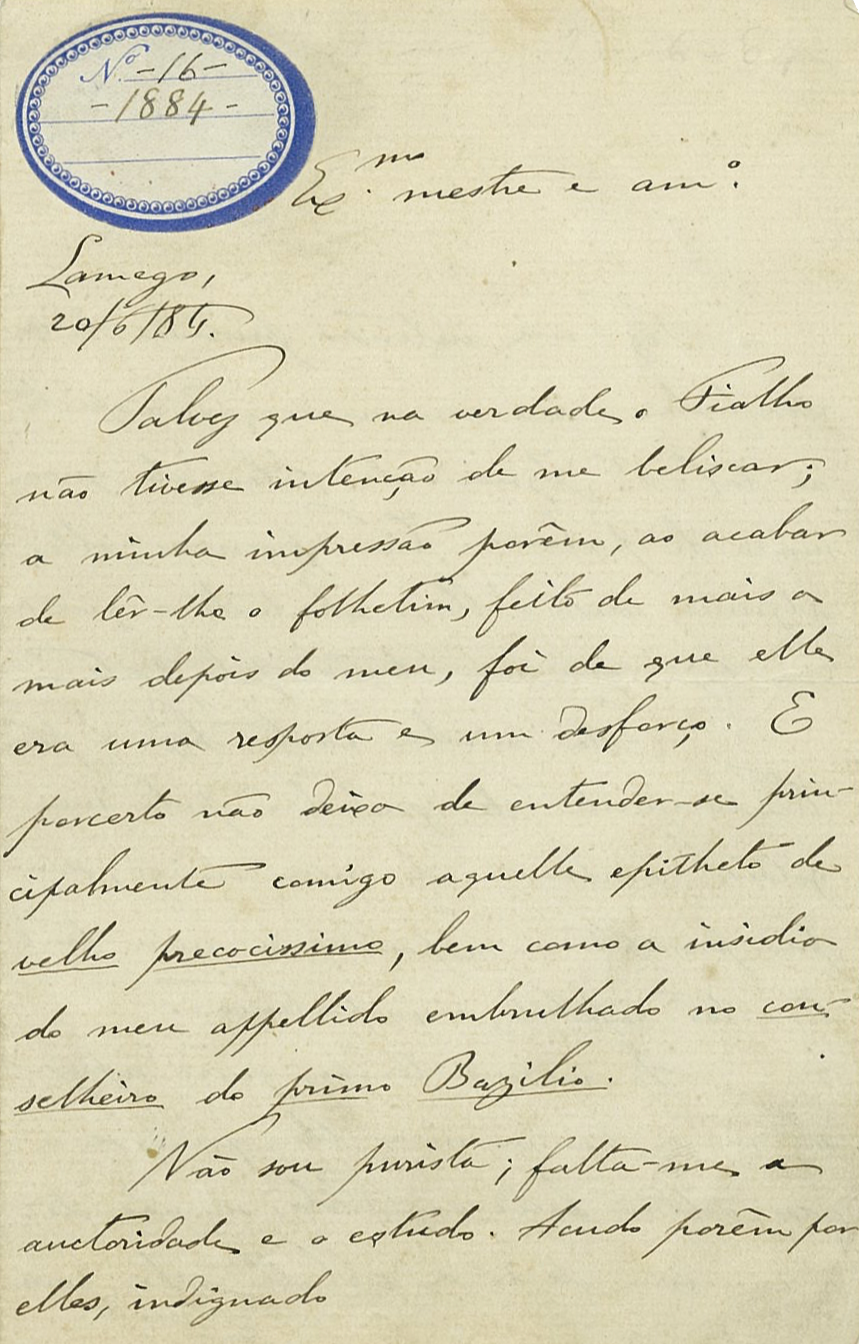 Nº -16-
-1884-
Ex.mo mestre e amº.
Lamego,
20/6/84.
Talvez que na verdade o Fialho
não tivesse intenção de me beliscar;
a minha impressão porêm, ao acabar
de lêr-lhe o folhetim, feito de mais a
mais depois do meu, foi de que elle
era uma resposta e um desforço. E
porcerto não deixa de entender-se prin-
cipalmente comigo aquelle epitheto de
velho precocissimo, bem como a insidia
do meu appellido embrulhado no con-
selheiro do primo Bazilio.
Não sou purista; falta-me a
auctoridade e o estudo. Acudo porêm por
elles, indignado